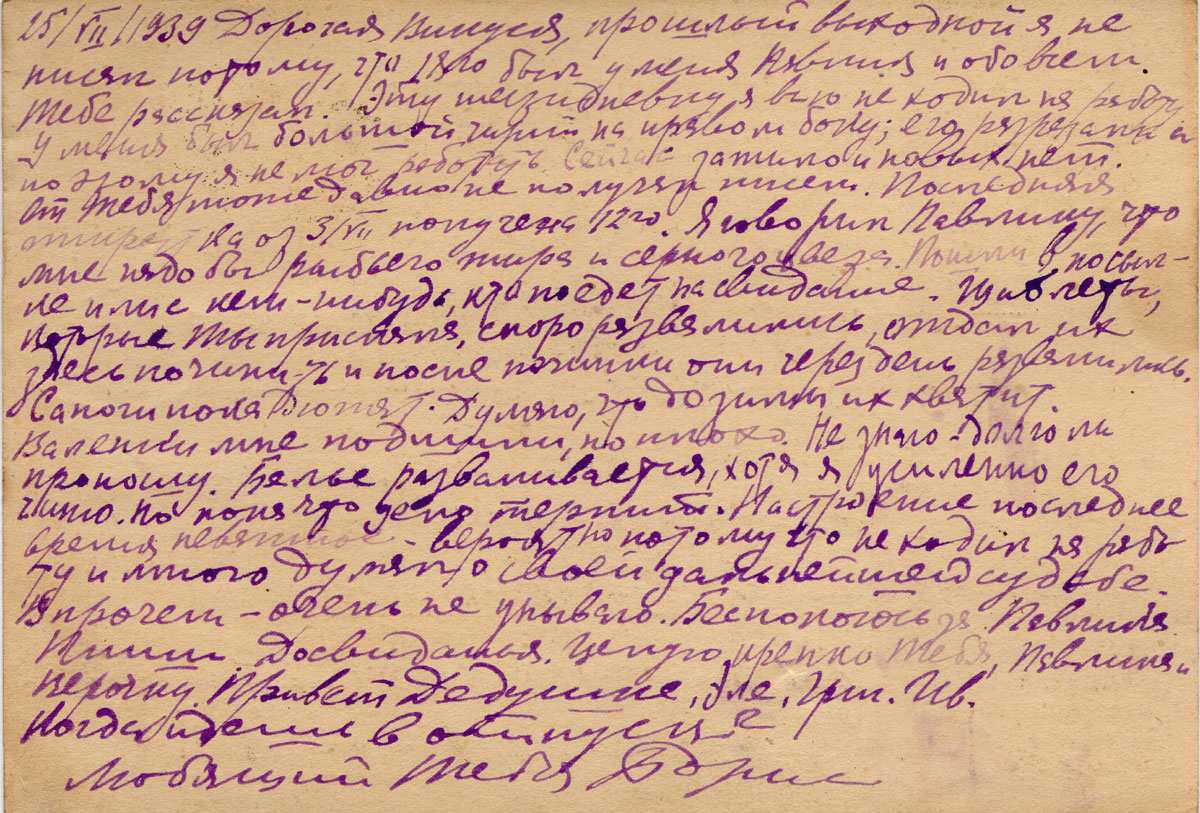 25/VII/1939 Дорогая Винуся, прошлый выходной я не
писал потому, что 18го был у меня Павлик и обо всем
Тебе рассказал. Эту шестидневку я всю не ходил на работу
У меня был большой чирий на правом боку; его разрезали и
поэтому я не мог работать Сейчас зажило и новых нет.
От Тебя тоже давно не получал писем. Последняя
открытка от 3/VII получена 12го. Я говорил Павлику, что
мне надо бы рыбьего жира и серного цвета. Пошли в посыл-
ке или с кем-нибудь, кто поедет на свидание. Щиблеты,
которые Ты прислала, скоро развалились, отдал их
здесь починить и после починки они через день развалились.
Сапоги пока служат. Думаю, что до зимы их хватит.
Валенки мне подшили, но плохо. Не знаю - долго ли
проношу. Белье разваливается, хотя я усиленно его
чиню. Но пока что дело терпит. Настроение последнее
время неважное - вероятно потому что не ходил на рабо
ту и много думал о своей дальнейшей судьбе.
Впрочем - очень не унываю. Беспокоюсь за Павлика
Пиши. Досвидания. Целую крепко Тебя, Павлика и
Лерочку. Привет Дедушке, Эле, Гри. Ив.
Когда идешь в отпуск?
Любящий Тебя Борис